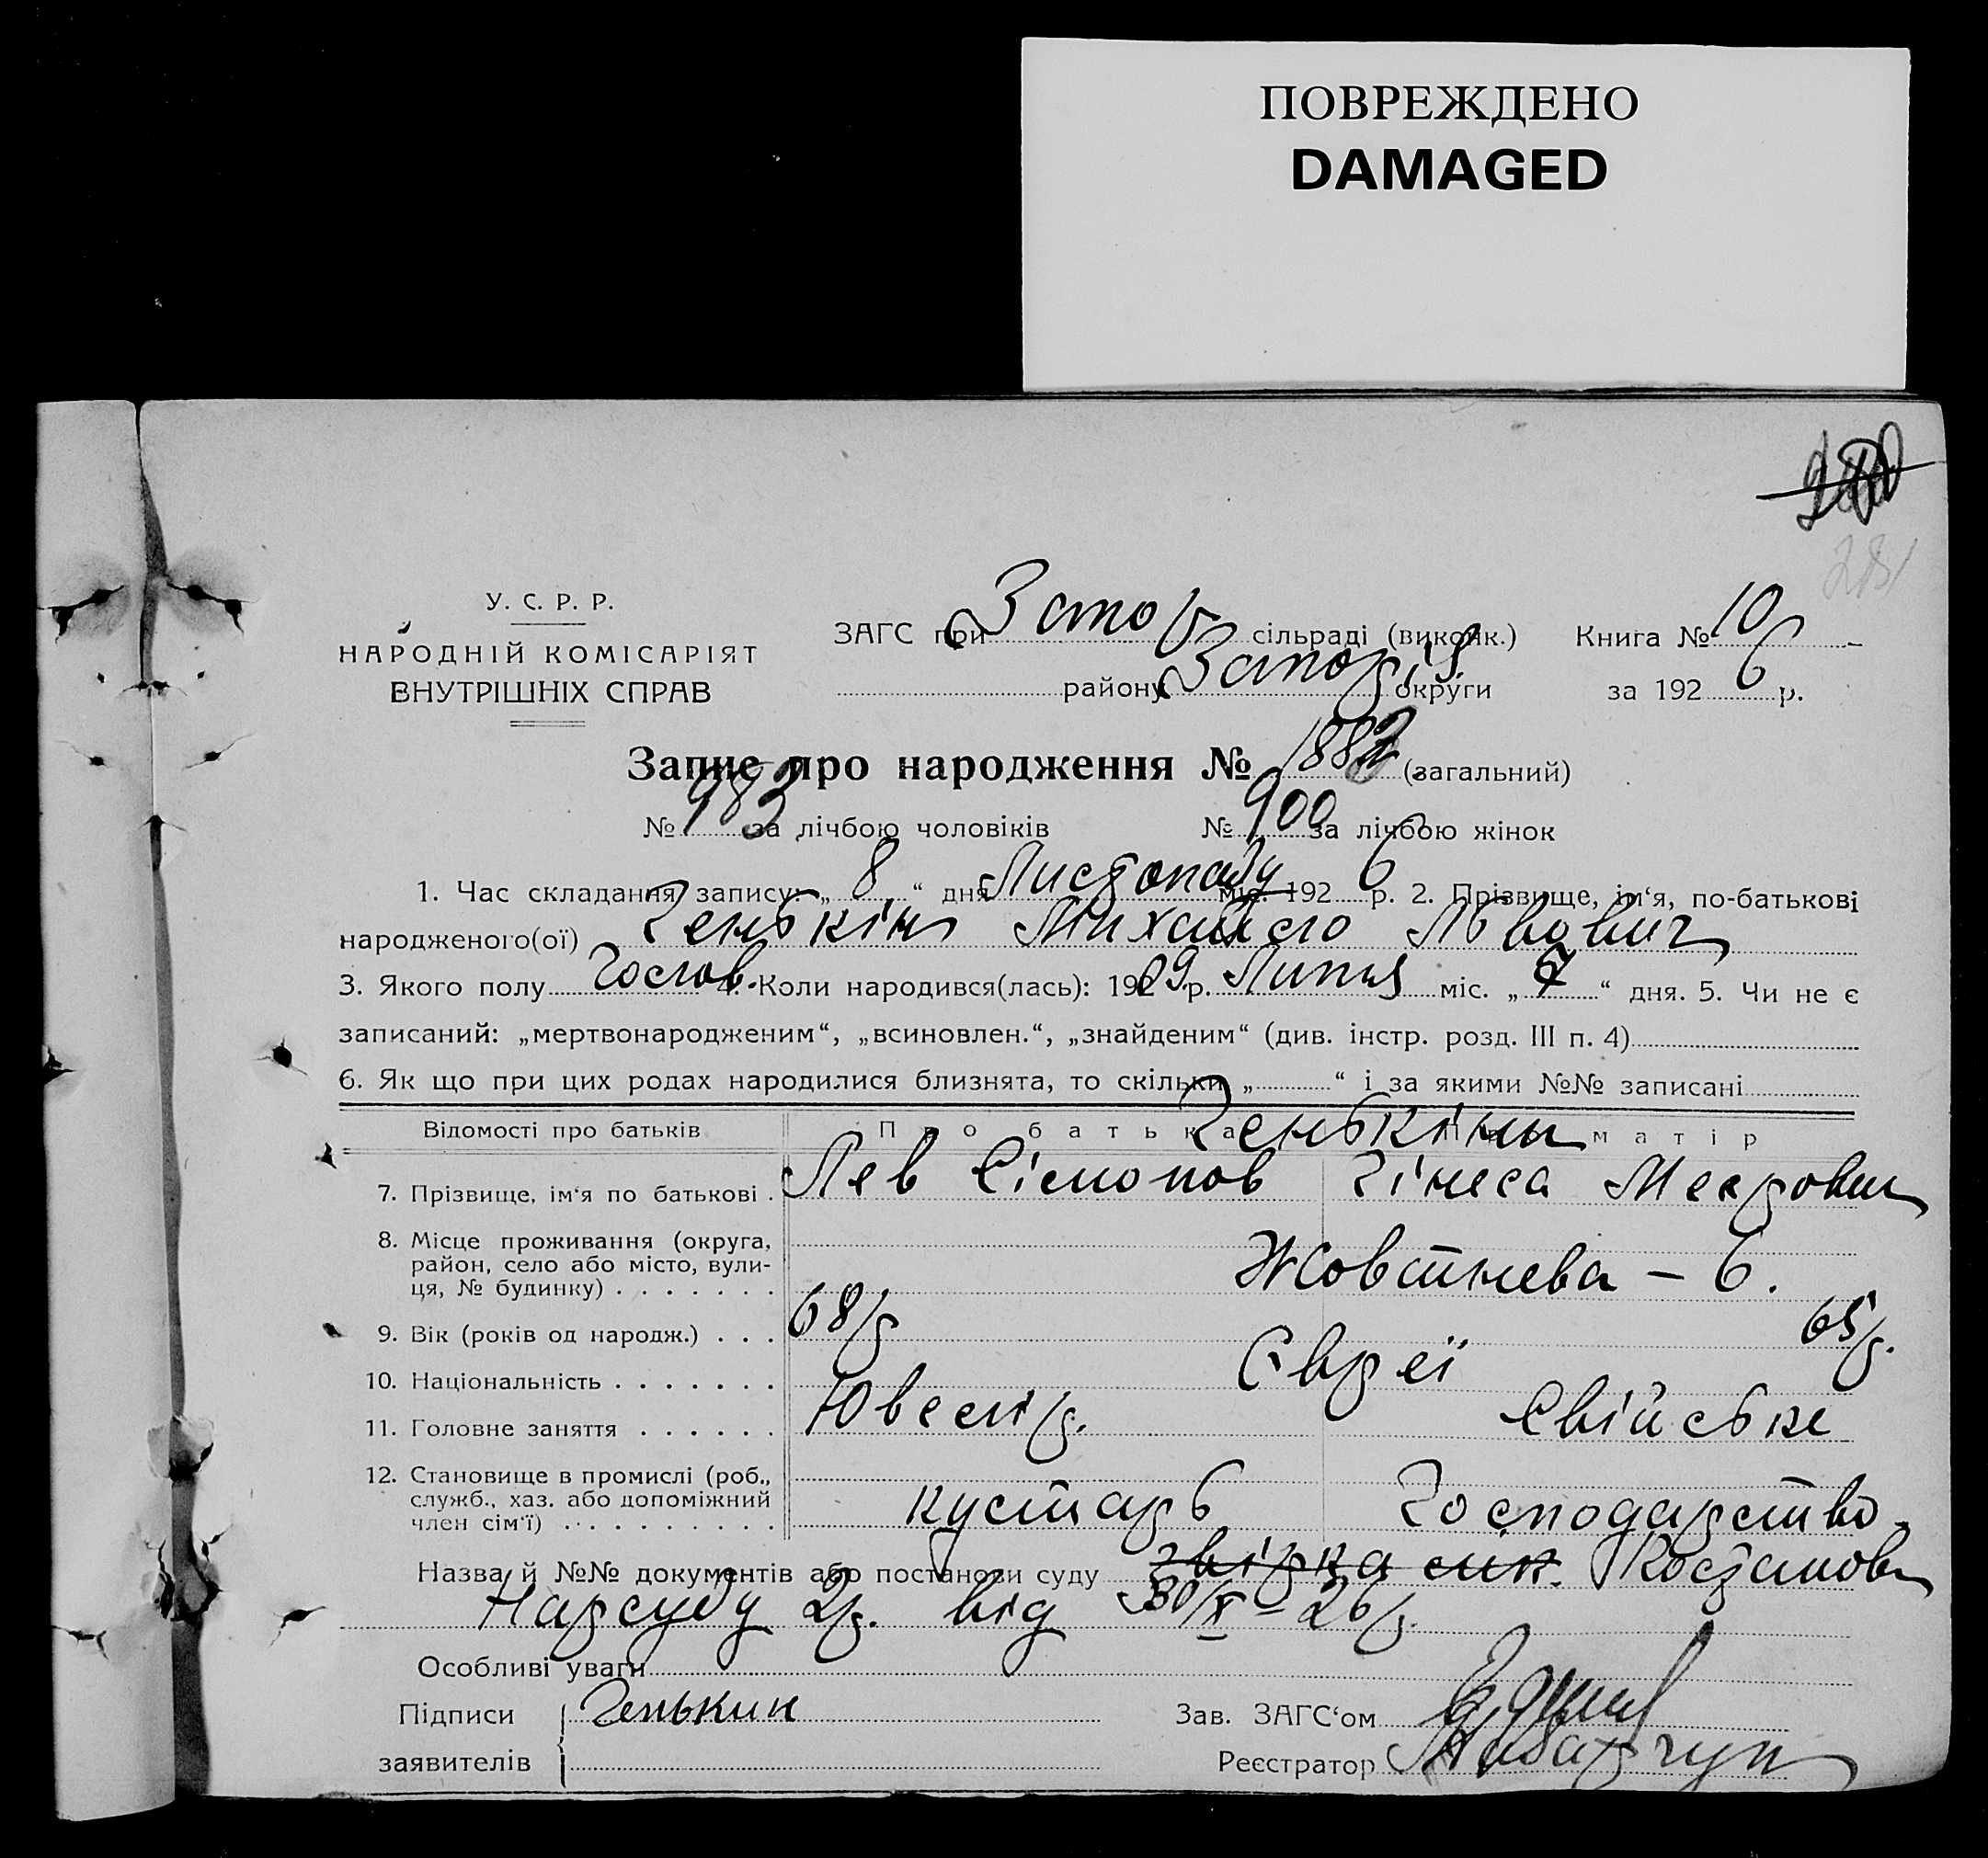 ПОВРЕЖДЕНО
DAMAGED
281
У. С. Р. Р.
НАРОДНІЙ КОМІСАРІЯТ
ВНУТРІШНІХ СПРАВ
ЗАГС при Запор сільраді (виконк.) Книга № 10
району Запоріз округи за 1926 р.
Запис про народження № 1882 (загальний)
№ 983 за лічбою чоловіків № 900 за лічбою жінок
1. Час складання запису: „ 8 “ дня Листопаду міс. 1926 р. 2. Прізвище, ім‘я, по-батькові
народженого(ої) Генькін Михайло Львович
3. Якого полу Чолов. 4. Коли народився(лась): 1909 р. Липня міс. „ 7 “ дня. 5. Чи не є
записаний: „мертвонародженим“, „всиновлен.“, „знайденим“ (див. інстр. розд. III п. 4)
6. Як що при цих родах народилися близнята, то скільки „ “ і за якими №№ записані
Відомості про батьків Про батька Про матір
Генькіни
7. Прізвище, ім‘я по батькові . Лев Сімонов Гінеса Меєровн
8. Місце проживання (округа, район, село або місто, вули-
ця, № будинку) . . . . . . . Жовтнева – 6.
9. Вік (років од народж.) . . . 68/р 65/р.
10. Національність . . . . . . . Євреї
11. Головне заняття . . . . . . Ювелір. Свійське
12. Становище в промислі (роб.,
служб., хаз. або допоміжний
член сім‘ї) . . . . . . . . . кустарь Господарство.
Назва й №№ документів або постанови суду звірка Постанова
Нарсуду 2р. від 30/X – 26/р.
Особливі уваги
Підписи Генькин Зав. ЗАГС‘ом
заявителів Реєстратор